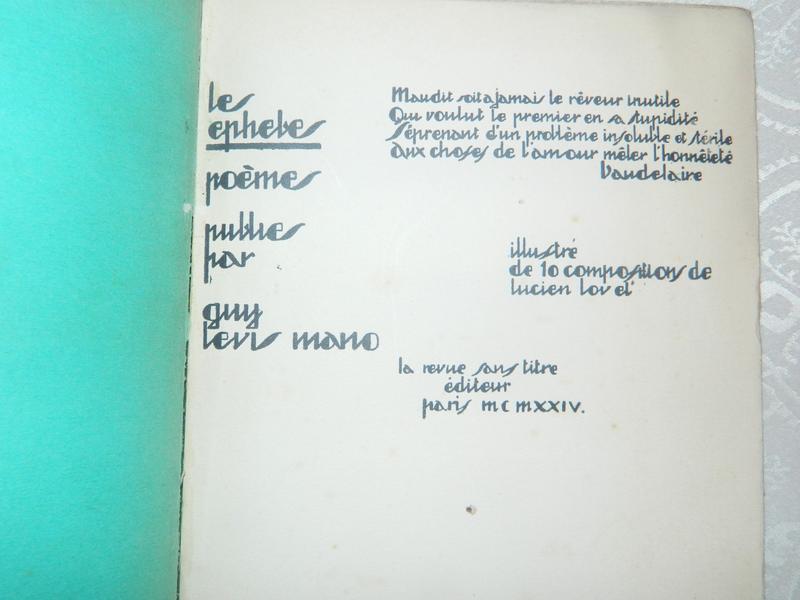 les
ephebes
poèmes
publies
par
guy
levis mano
Maudit soit a jamais le rêveur inutile
Qui voulut le premier en sa stupidité
S'éprenant d'un problème insoluble et stérile
aux choses de l'amour mêler l'honnêteté
baudelaire
illustré
de 10 compositions de
lucien lovel
la revue sans titre
éditeur
paris mcmxxiv.